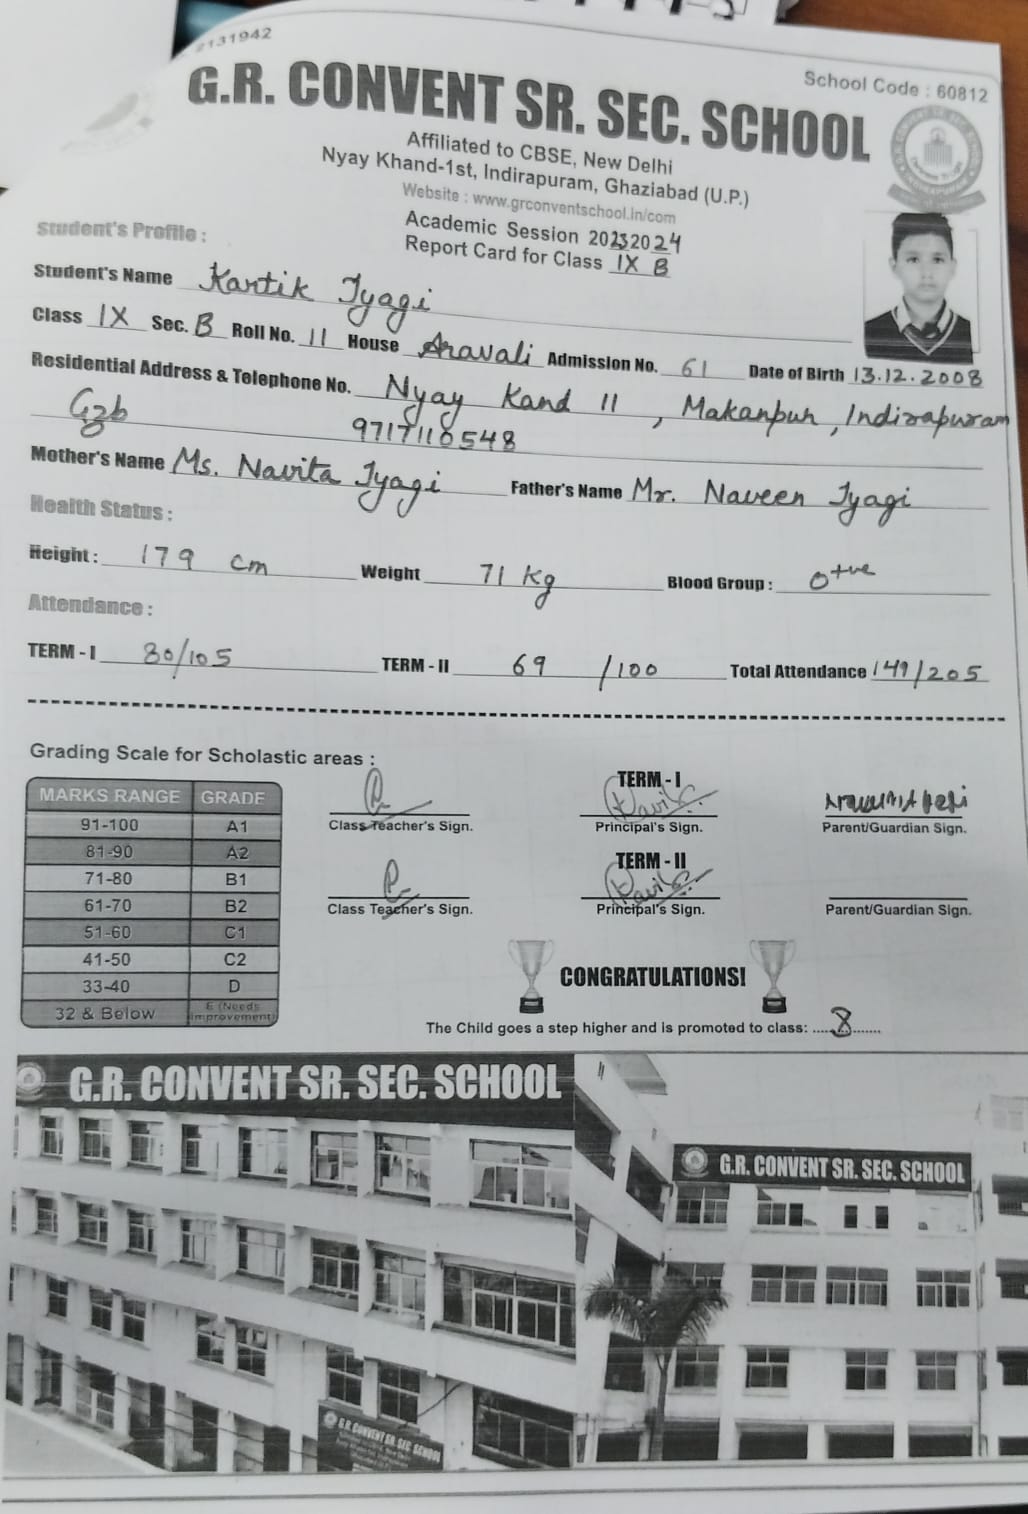 2131942
School Code : 60812
G.R. CONVENT SR. SEC. SCHOOL
Affiliated to CBSE, New Delhi
Nyay Khand-1st, Indirapuram, Ghaziabad (U.P.)
Website : www.grconventschool.in/com
Academic Session 2023 2024
Report Card for Class IX B
Student's Profile :
Student's Name Kartik Tyagi
Class IX Sec. B Roll No. 11 House Aravali Admission No. 61 Date of Birth 13.12.2008
Residential Address & Telephone No. Nyay Kand 11, Makanpur, Indirapuram
Gzb 9717110548
Mother's Name Ms. Navita Tyagi Father's Name Mr. Naveen Tyagi
Health Status :
Height : 179 cm Weight 71 kg Blood Group : O+ve
Attendance :
TERM - I 80/105 TERM - II 69 /100 Total Attendance 149/205
Grading Scale for Scholastic areas :
MARKS RANGE GRADE
91-100 A1
81-90 A2
71-80 B1
61-70 B2
51-60 C1
41-50 C2
33-40 D
32 & Below E (Needs improvement)
TERM - I
Class Teacher's Sign. Principal's Sign. Parent/Guardian Sign.
TERM - II
Class Teacher's Sign. Principal's Sign. Parent/Guardian Sign.
CONGRATULATIONS!
The Child goes a step higher and is promoted to class: .....8.......
G.R. CONVENT SR. SEC. SCHOOL
G.R. CONVENT SR. SEC. SCHOOL
G.R. CONVENT SR. SEC. SCHOOL